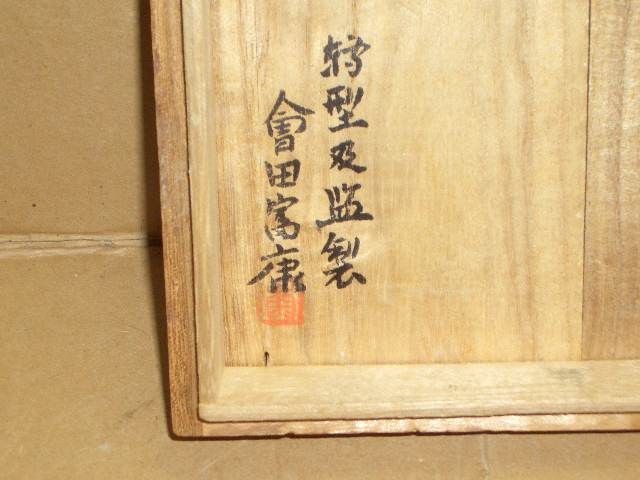 鋳型及監製
會田富康